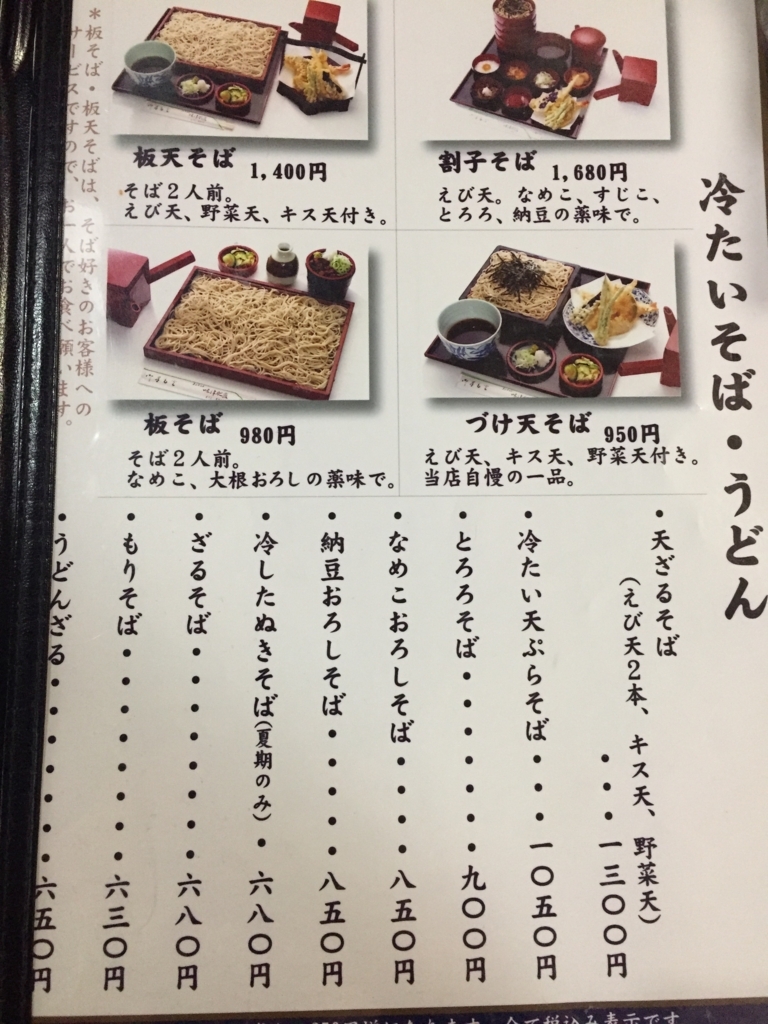 冷たいそば・うどん
板天そば 1,400円
そば2人前。
えび天、野菜天、キス天付き。
割子そば 1,680円
えび天。なめこ、すじこ、
とろろ、納豆の薬味で。
板そば 980円
そば2人前。
なめこ、大根おろしの薬味で。
づけ天そば 950円
えび天、キス天、野菜天付き。
当店自慢の一品。
＊板そば・板天そばは、そば好きのお客様への
サービスですので、お一人でお食べ願います。
・天ざるそば
(えび天2本、キス天、野菜天)
・・・一三〇〇円
・冷たい天ぷらそば・・・一〇五〇円
・とろろそば・・・・・・・九〇〇円
・なめこおろしそば・・・・八五〇円
・納豆おろしそば・・・・・八五〇円
・冷したぬきそば(夏期のみ)・六八〇円
・ざるそば・・・・・・・・六八〇円
・もりそば・・・・・・・・六三〇円
・うどんざる・・・・・・・六五〇円
全て税込み表示です